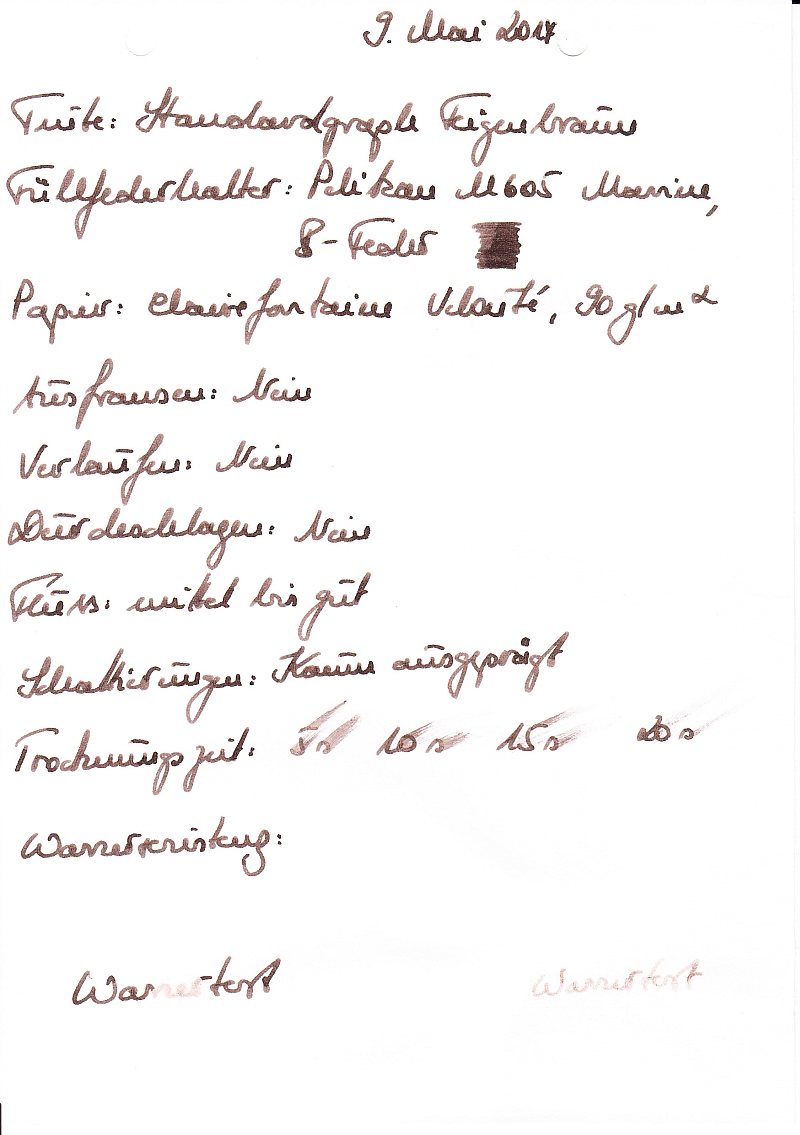 9. Mai 2017
Tinte: Standardgraph Feigenbraun
Füllfederhalter: Pelikan M605 Marine,
B-Feder
Papier: Clairefontaine Velouté, 90 g/m²
Ausfransen: Nein
Verlaufen: Nein
Durchschlagen: Nein
Fluss: mittel bis gut
Schattierungen: Kaum ausgeprägt
Trocknungszeit: 5 s 10 s 15 s 20 s
Wasserfestigkeit:
Wassertest Wassertest